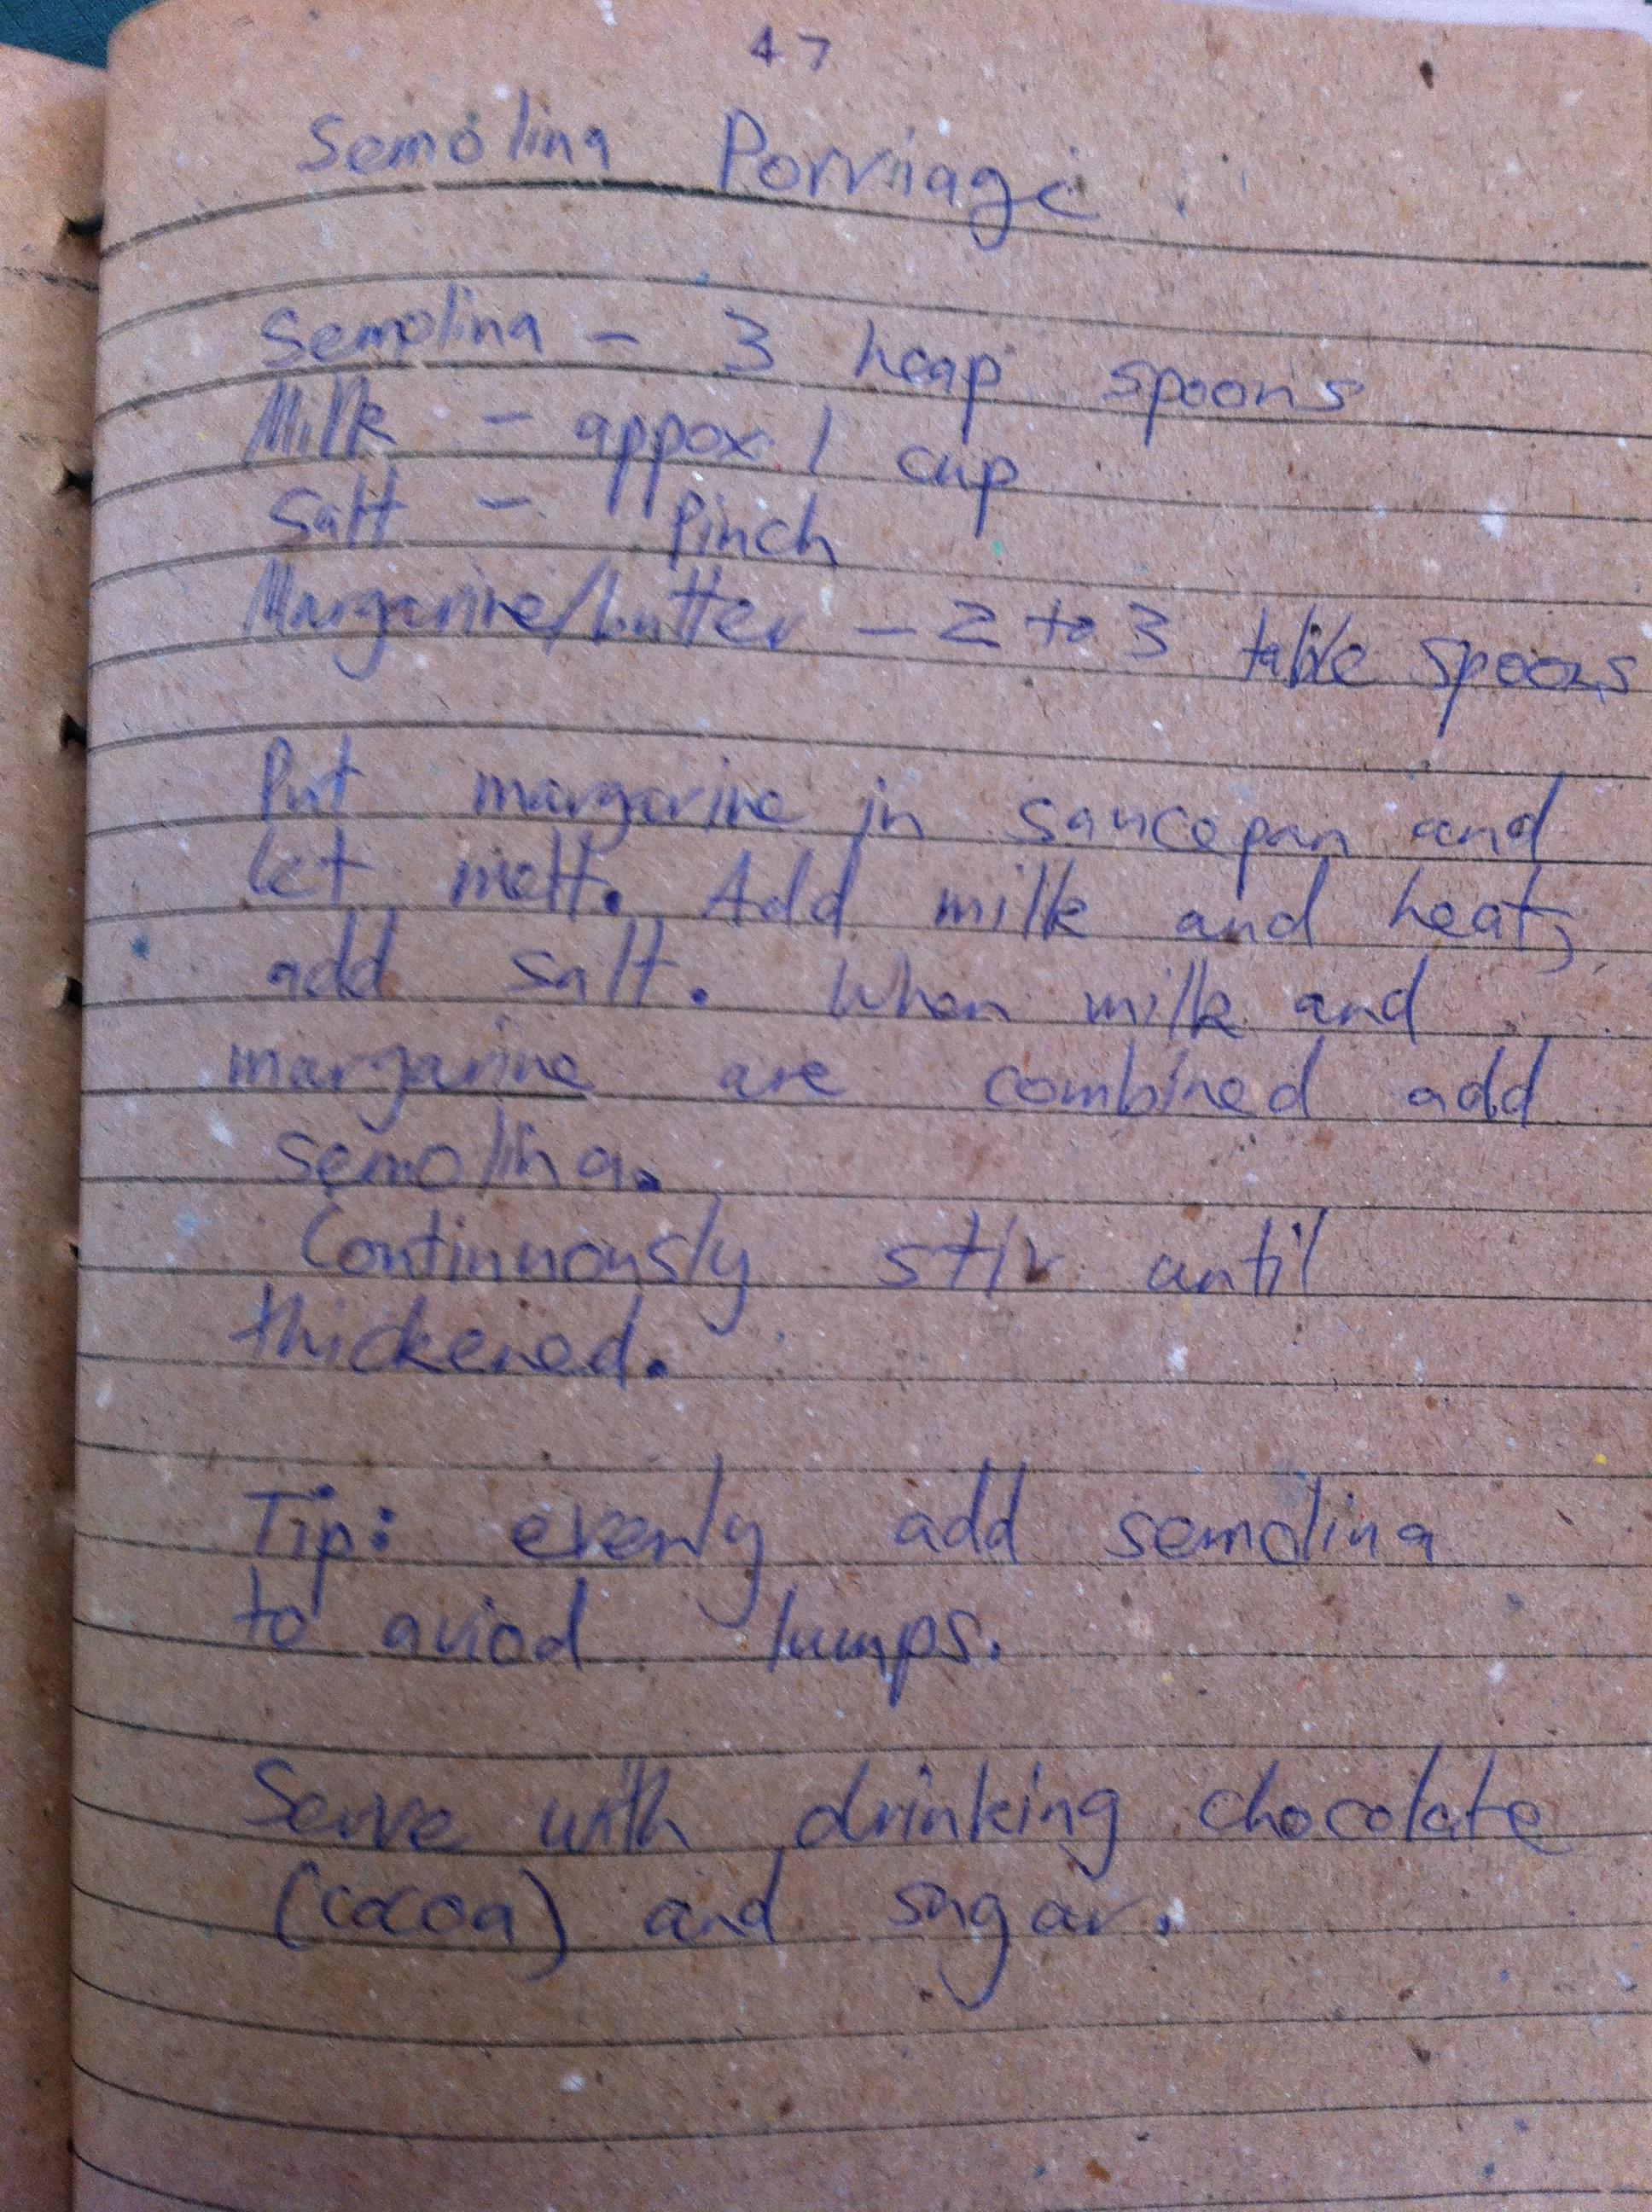 47
Semolina Porriage.
Semolina - 3 heap spoons
Milk - appox. 1 cup
Salt - Pinch
Margarine/butter - 2 to 3 table spoons
Put margarine in saucepan and
let melt. Add milk and heat,
add salt. When milk and
margarine are combined add
semolina.
Continuously stir until
thickened.
Tip: evenly add semolina
to aviod lumps.
Serve with drinking chocolate
(cocoa) and sugar.